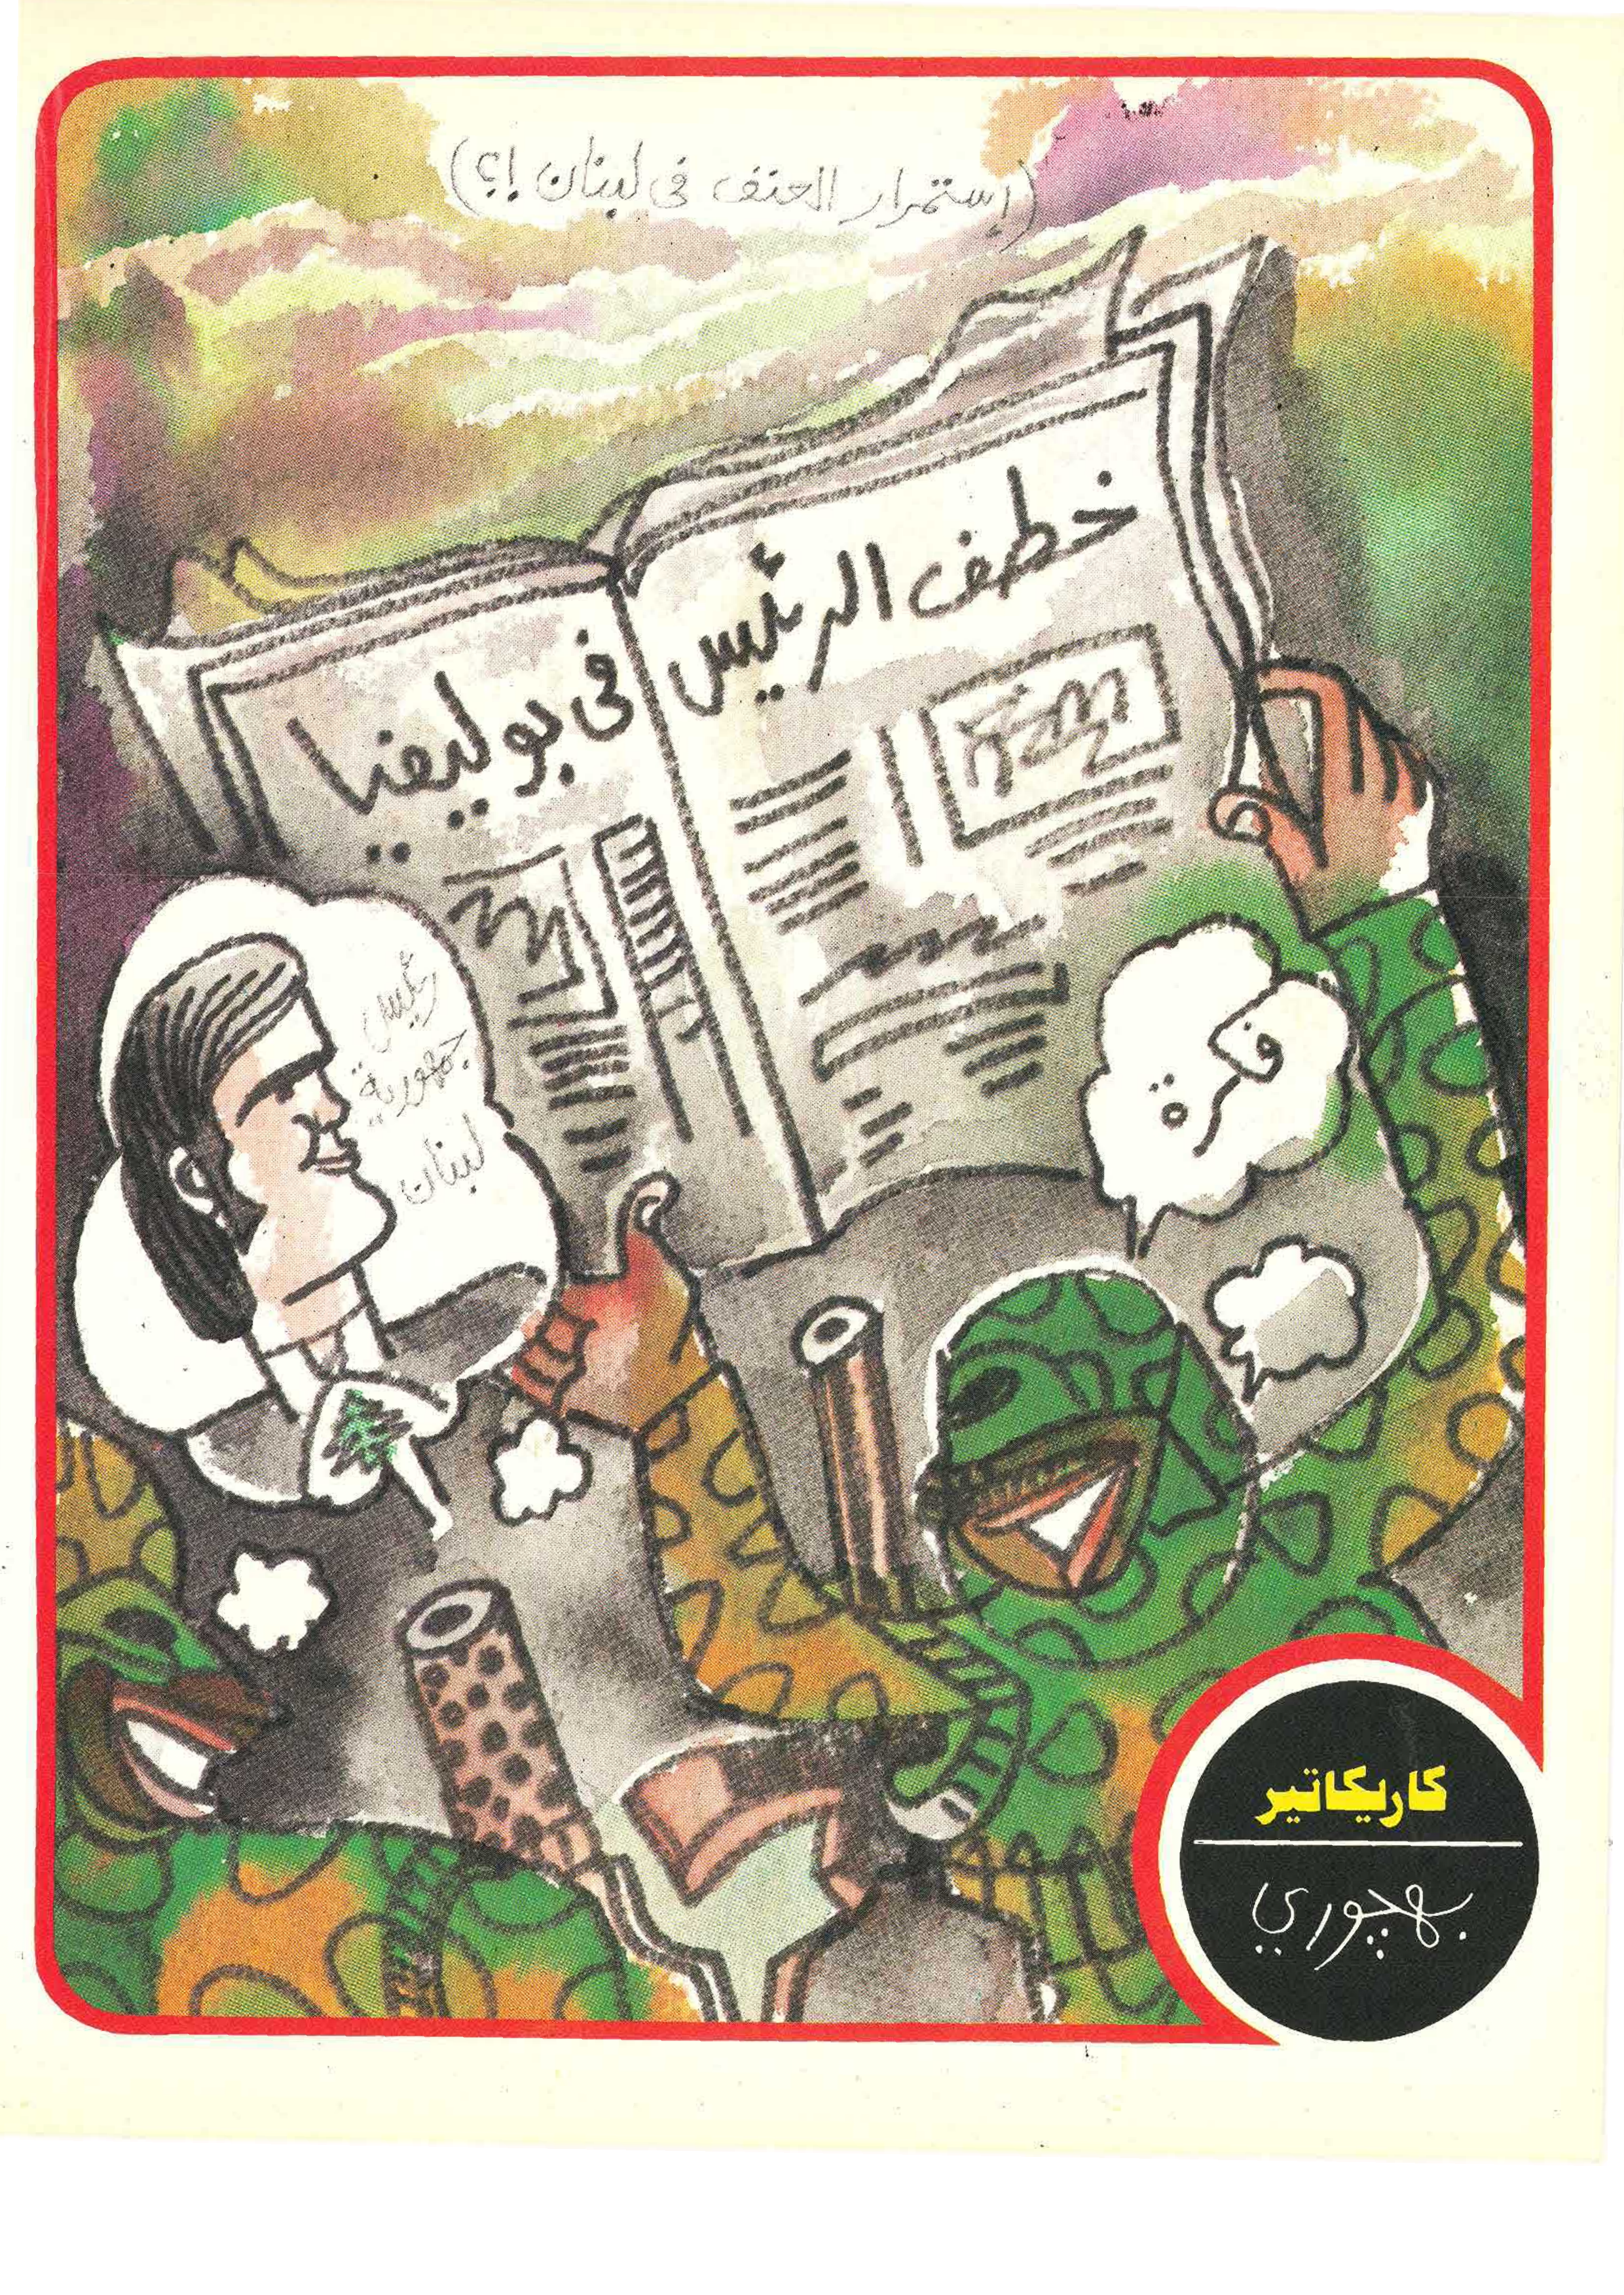 (إستمرار العنف فى لبنان !؟)
خطف الرئيس فى بوليفيا
رئيس
جمهورية
لبنان
كاريكاتير
بهچوري